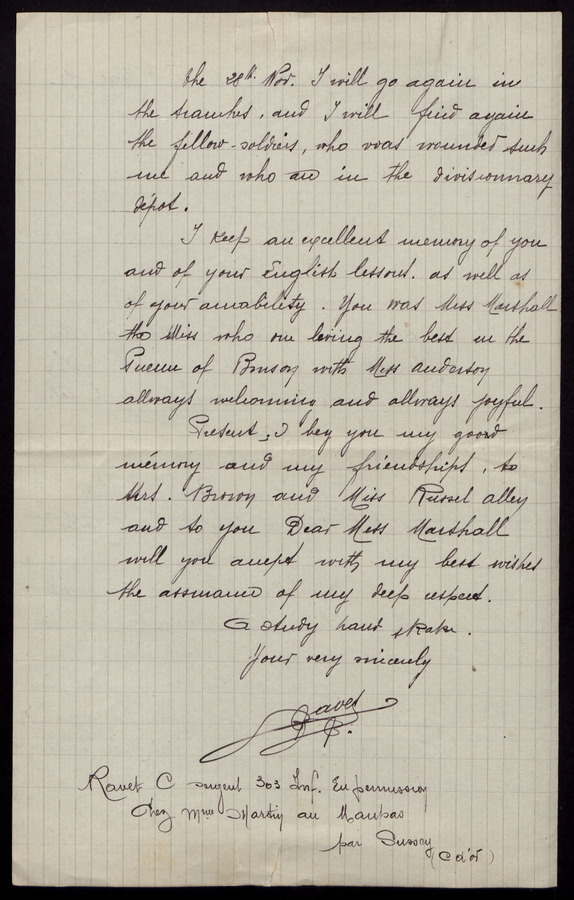 the 28th Nov. I will go again in
the tranches, and I will find again
the fellow-soldiers, who was wounded such
me and who are in the divisionnary
dépot.
I keep an excellent memory of you
and of your English lessons. as well as
of your amability. You was Miss Marshall
the Miss who one loving the best in the
of with Miss Anderson
allways welcoming and allways joyful.
Present, I beg you my good
mémory and my friendships, to
Mrs. Brown and Miss Russel alley
and to you Dear Miss Marshall
will you accept with my best wishes
the assurance of my deep respect.
A study hand shake.
Your very sincerely
Ravet
Ravet C sergent 303 Inf. En permission
Chez Mme Martin au Maupas
par Sussey (Cd'or)